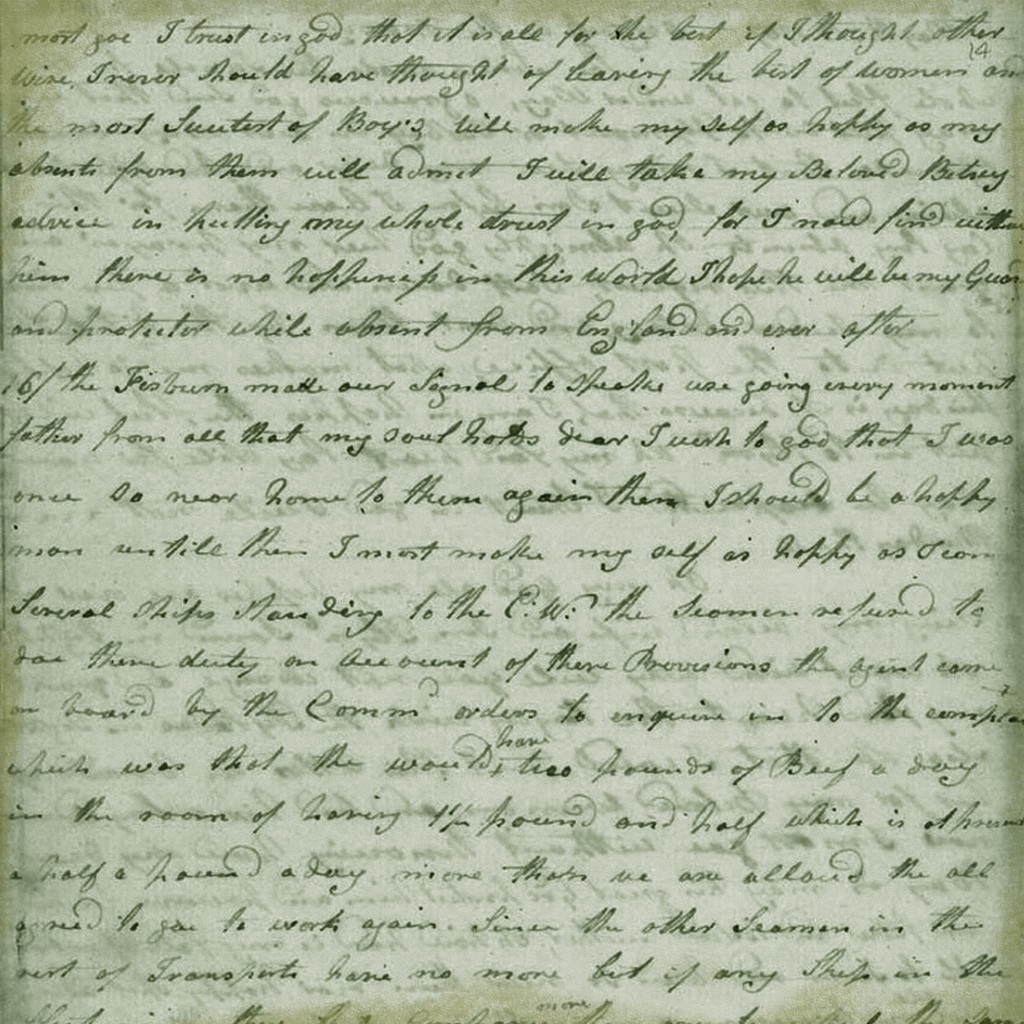 most goe I trust in god that it is all for the best if I thought other
14
wise I never should have thought of leaving the best of women and
the most Sweetest of Boy's will make my self as happy as my
absents from them will admit I will take my Beloved Betsey
advice in putting my whole trust in god for I now find without
him there is no happeness in this World I hope he will be my Guard
and protector while absent from England and ever after
16/ the Fisburn made our Signal to speake use going every moment
father from all that my soul holds dear I wish to god that I was
once so near home to them again then I should be a happy
man untill then I most make my self as happy as I can
Several ships standing to the E: W: the Seamen refused to
doe there duty on account of there Provisions the agent came
on board by the Comm.d orders to enquire in to the compla
which was that the would have two pounds of Beef a day
in the room of having 1½ pound and half which is at present
a half a pound a day more than we are allowd the all
agreed to goe to work again Since the other Seamen in the
rest of Transports have no more but if any Ship in the
more